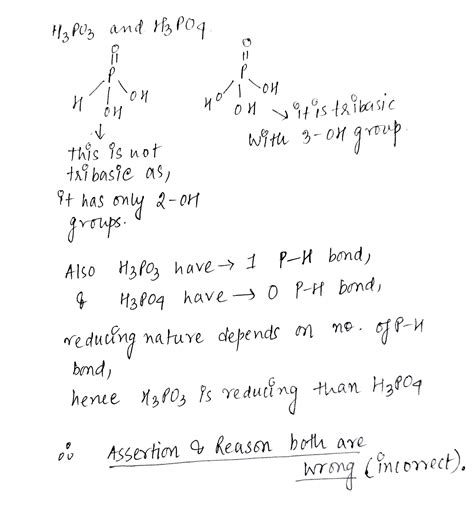 H3PO3 and H3PO4.
O O
P P
H OH OH HO OH OH
→ it is tribasic
with 3-OH group.
this is not
tribasic as,
it has only 2-OH
groups.
Also H3PO3 have → 1 P-H bond,
& H3PO4 have → 0 P-H bond,
reducing nature depends on no. of P-H
bond,
hence H3PO3 is reducing than H3PO4
∴ Assertion & Reason both are
wrong (incorrect).